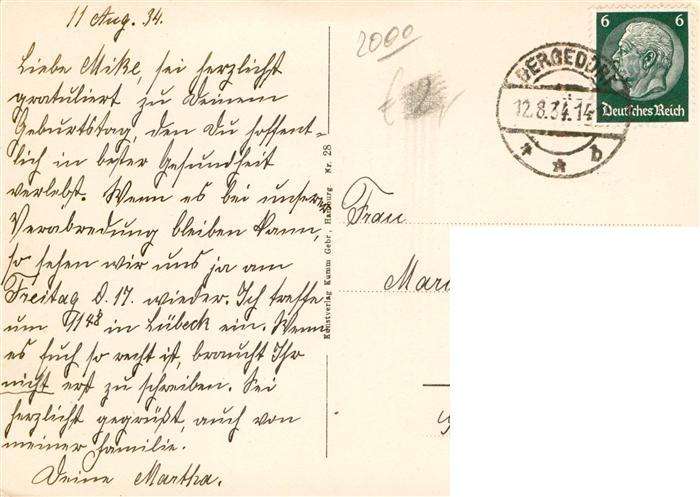 11 Aug. 34.
Liebe Mike, sei herzlichst
gratuliert zu Deinem
Geburtstag, den Du hoffent-
lich in bester Gesundheit
verlebst. Wenn es bei unserer
Verabredung bleiben kann,
so sehen wir uns ja am
Freitag d. 17. wieder. Ich treffe
um 1148 in Lübeck ein. Wenn
es Euch so recht ist, braucht Ihr
nicht erst zu schreiben. Sei
herzlichst gegrüßt, auch von
meiner Familie.
Deine Martha.
Kunstverlag Kumm Gebr., Hamburg. Nr. 28
2000
BERGEDORF
12.8.34.14
* b
6 6
Deutsches Reich
Frau